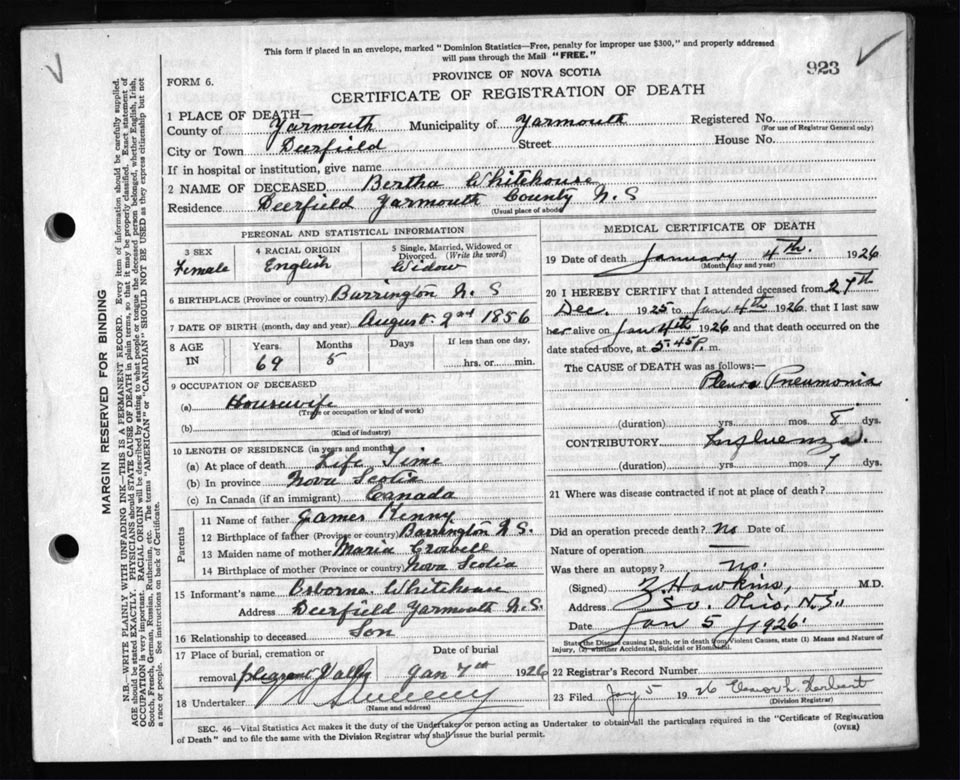 This form if placed in an envelope, marked "Dominion Statistics—Free, penalty for improper use $300," and properly addressed
will pass through the Mail "FREE."
923
PROVINCE OF NOVA SCOTIA
FORM 6.
CERTIFICATE OF REGISTRATION OF DEATH
1 PLACE OF DEATH—
County of Yarmouth Municipality of Yarmouth Registered No.
(For use of Registrar General only)
City or Town Deerfield Street House No.
If in hospital or institution, give name
2 NAME OF DECEASED Bertha Whitehouse
Residence Deerfield Yarmouth County N.S
(Usual place of abode)
PERSONAL AND STATISTICAL INFORMATION
3 SEX Female
4 RACIAL ORIGIN English
5 Single, Married, Widowed or Divorced. (Write the word) Widow
6 BIRTHPLACE (Province or country) Barrington N.S
7 DATE OF BIRTH (month, day and year) August 2nd 1856
8 AGE IN Years. 69 Months 5 Days If less than one day, hrs. or min.
9 OCCUPATION OF DECEASED
(a) Housewife
(Trade or occupation or kind of work)
(b)
(Kind of industry)
10 LENGTH OF RESIDENCE (in years and months)
(a) At place of death Life Time
(b) In province Nova Scotia
(c) In Canada (if an immigrant) Canada
Parents
11 Name of father James Kenny
12 Birthplace of father (Province or country) Barrington N.S.
13 Maiden name of mother Maria Crowell
14 Birthplace of mother (Province or country) Nova Scotia
15 Informant's name Osborne Whitehouse
Address Deerfield Yarmouth N.S.
16 Relationship to deceased Son
17 Place of burial, cremation or removal Pleasant Valley
Date of burial Jan 7th 1926
18 Undertaker Sweeny
(Name and address)
MEDICAL CERTIFICATE OF DEATH
19 Date of death January 4th. 1926
(Month, day and year)
20 I HEREBY CERTIFY that I attended deceased from 27th
Dec. 1925 to Jan 4th 1926 that I last saw
her alive on Jan 4th 1926 and that death occurred on
date stated above, at 5.45 P. m.
The CAUSE OF DEATH was as follows:—
Pleuro Pneumonia
(duration) yrs. mos. 8 dys.
CONTRIBUTORY Influenza.
(duration) yrs. mos. 7 dys.
21 Where was disease contracted if not at place of death?
Did an operation precede death? No Date of
Nature of operation —
Was there an autopsy? No.
(Signed) Z. Hawkins, M.D.
Address So. Ohio, N.S.
Date Jan 5 / 1926
State the Disease causing Death, or in death from Violent Causes, state (1) Means and Nature of
Injury, (2) whether Accidental, Suicidal or Homicidal.
22 Registrar's Record Number
23 Filed Jany 5 1926 h. Herbert
(Division Registrar)
SEC. 46—Vital Statistics Act makes it the duty of the Undertaker or person acting as Undertaker to obtain all the particulars required in the "Certificate of Registration
of Death" and to file the same with the Division Registrar who shall issue the burial permit.
(OVER)
MARGIN RESERVED FOR BINDING
N.B.—WRITE PLAINLY WITH UNFADING INK—THIS IS A PERMANENT RECORD. Every item of information should be carefully supplied.
AGE should be stated EXACTLY. PHYSICIANS should STATE CAUSE OF DEATH in plain terms, so that it may be properly classified. Exact statement of
OCCUPATION is very important. RACIAL ORIGIN will be described by stating to what people or tongue the deceased person belonged, whether English, Irish,
Scotch, French, German, Russian, Ruthenian, etc. The terms "AMERICAN" or "CANADIAN" SHOULD NOT BE USED as they express citizenship but not
a race or people. See instructions on back of Certificate.